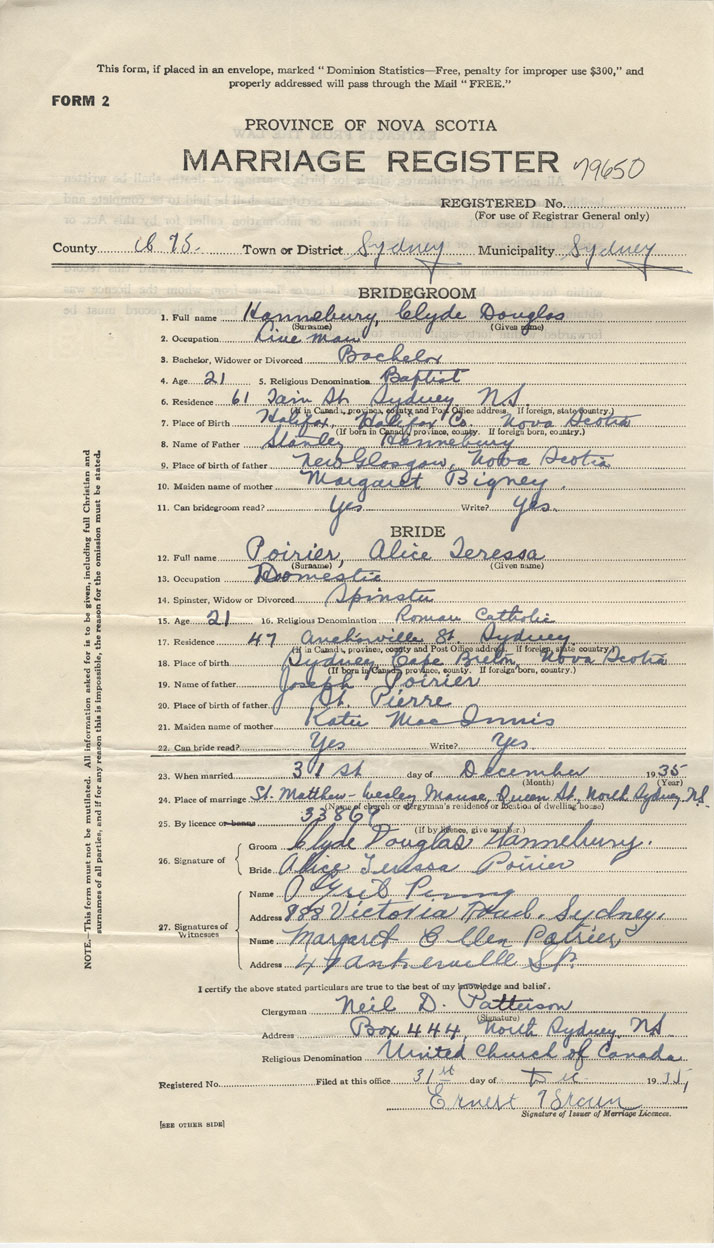 This form, if placed in an envelope, marked "Dominion Statistics—Free, penalty for improper use $300," and
properly addressed will pass through the Mail "FREE."
FORM 2
PROVINCE OF NOVA SCOTIA
MARRIAGE REGISTER 79650
REGISTERED No.
(For use of Registrar General only)
County Town or District Sydney Municipality Sydney
BRIDEGROOM
1. Full name Hannebury, Clyde Douglas
(Surname) (Given name)
2. Occupation Line man
3. Bachelor, Widower or Divorced Bachelor
4. Age 21 5. Religious Denomination Baptist
6. Residence 61 St. Sydney N.S.
(If in Canada, province, county and Post Office address. If foreign, state country.)
7. Place of Birth Halifax, Halifax Co. Nova Scotia
(If born in Canada, province, county. If foreign born, country.)
8. Name of Father Stanley Hannebury
9. Place of birth of father New Glasgow, Nova Scotia
10. Maiden name of mother Margaret Bigney.
11. Can bridegroom read? Yes Write? Yes.
BRIDE
12. Full name Poirier, Alice Teressa
(Surname) (Given name)
13. Occupation Domestic
14. Spinster, Widow or Divorced Spinster
15. Age 21 16. Religious Denomination Roman Catholic
17. Residence 47 St. Sydney
(If in Canada, province, county and Post Office address. If foreign state country.)
18. Place of birth Sydney, Cape Breton, Nova Scotia
(If born in Canada, province, county. If foreign born, country.)
19. Name of father Joseph Poirier
20. Place of birth of father St. Pierre
21. Maiden name of mother Katie MacInnis
22. Can bride read? Yes Write? Yes.
23. When married 31st day of December 1935
(Month) (Year)
24. Place of marriage St. Matthew-Wesley Manse, Queen St., North Sydney, N.S.
(Name of church or clergyman's residence or location of dwelling house)
25. By licence or banns 33869
(If by licence, give number.)
26. Signature of
Groom Clyde Douglas Hannebury.
Bride Alice Teressa Poirier
27. Signatures of Witnesses
Name
Address 888 Victoria Road. Sydney.
Name Margaret Ellen Poirier
Address 47 St.
I certify the above stated particulars are true to the best of my knowledge and belief.
Clergyman Neil D. Patterson
(Signature)
Address Box 444, North Sydney, N.S.
Religious Denomination United Church of Canada
Registered No. Filed at this office 31st day of Dec 1935,
Ernest Brown
Signature of Issuer of Marriage Licences.
[SEE OTHER SIDE]
NOTE.—This form must not be mutilated. All information asked for is to be given, including full Christian and
surnames of all parties, and if for any reason this is impossible, the reason for the omission must be stated.